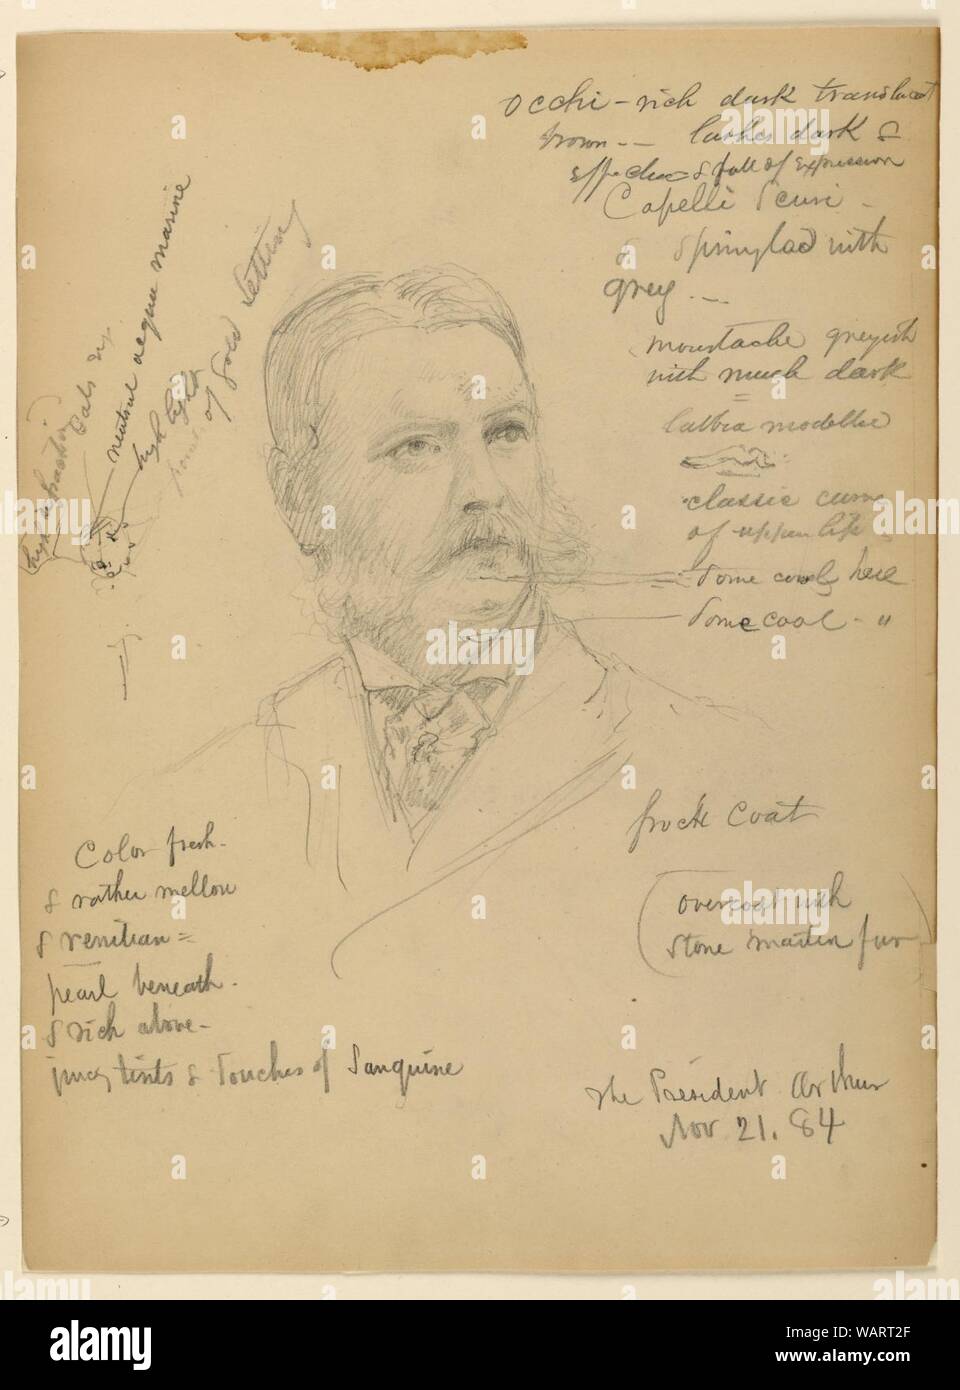 occhi - rich dark translucent
brown -- lashes dark &
effective & full of expression
Capelli Scuri -
& sprinylad with
grey --
moustache greyish
with much dark
labbia modelle
classic curve
of upper lip
Some cool here
Some cool - "
neutral acqua marine
high light
point of gold setting
frock coat
(overcoat with
stone marten fur)
Color fresh -
& rather mellow
& venitian =
pearl beneath -
& rich above -
juicy tints & touches of Sanguine
The President Arthur
Nov 21. 84
alamy
Image ID: WART2F
www.alamy.com